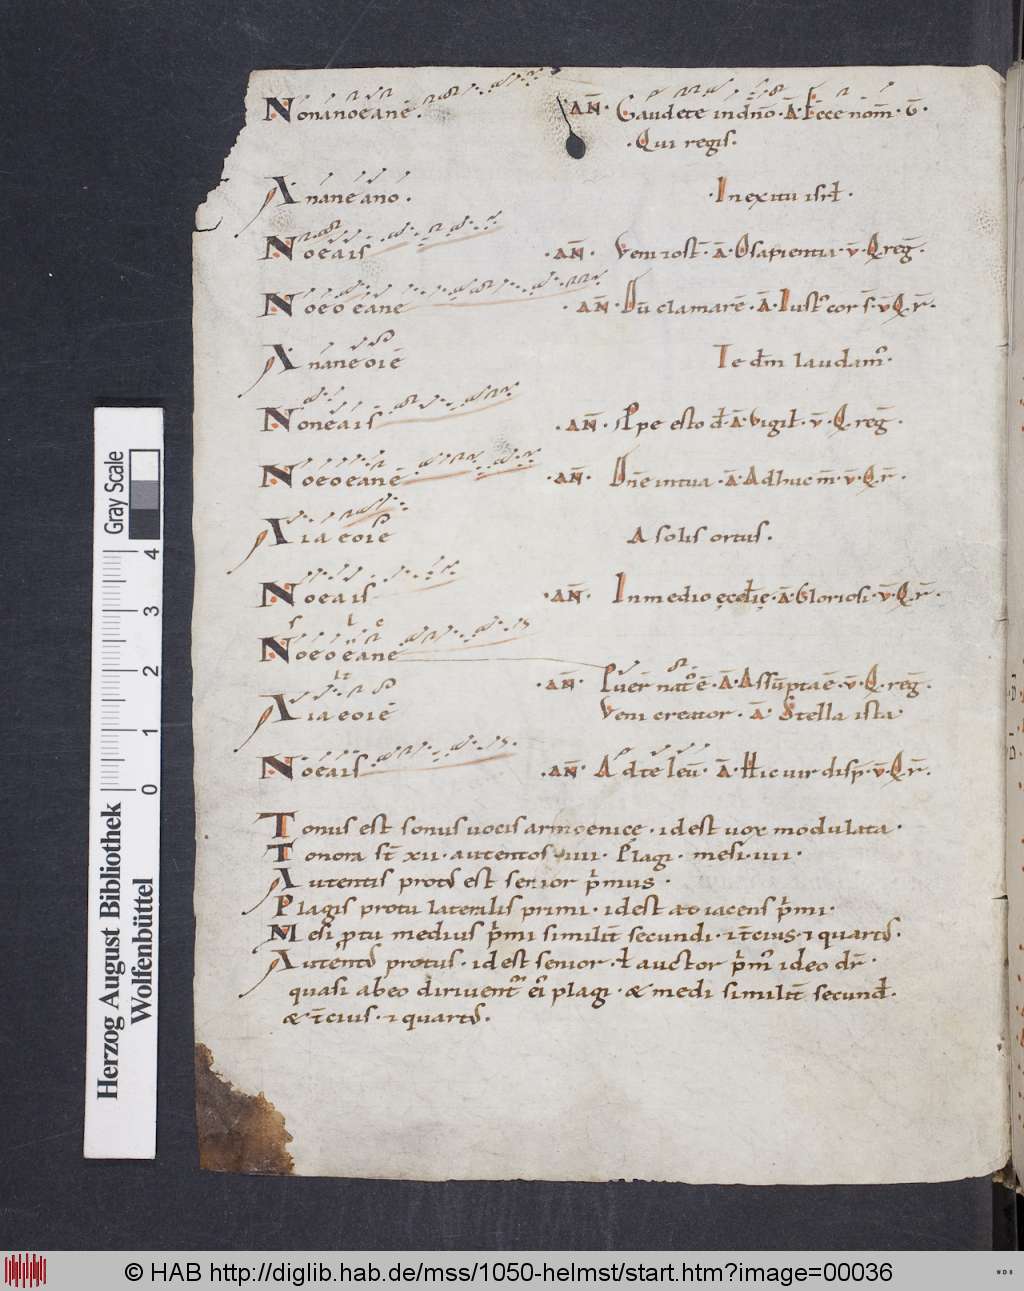 Nonanoeanē. · AN̄ · Gaudete in dn̄o · Ā · Ecce nom̄ · v̄ ·
· Qui regis ·
Ananeano · · In exitu isrƚ ·
Noeais · AN̄ · Veni · Ā · O sapientia · v̄ · Q reḡ ·
Noeoeane · AN̄ · Dū clamarē · Ā · Iust cor · v̄ · Q r̄ ·
Ananeoiē Te dm̄ laudam᷒ ·
Noneais · AN̄ · ꝑpe esto đ · Ā · Vigiƚ · v̄ · Q reḡ ·
Noeoeane · AN̄ · Dn̄e in tua · Ā · Adhuc m̄ · v̄ · Q r̄ ·
Aiaeoiē A solis ortus ·
Noeais · AN̄ · In medio · Ā · Gloriosi · v̄ · Q r̄ ·
Noeoeane
· AN̄ · Puer nat᷒ ē · Ā · Assūpta ē · v̄ · Q reḡ ·
Aiaeoiē Veni creator · Ā · Stella ista ·
Noeais · AN̄ · Ad te leū · Ā · Hic uir disp · v̄ · Q r̄ ·
Tonus est sonus uocis armoenicę · id est uox modulata ·
Tonora st̄ xii · autentos iiii · Plagi · mesi · iiii ·
Autentis prot᷒ est senior p̄mus ·
Plagis protu lateralis primi · id est iacens p̄mi ·
Mesi ꝓtu medius p̄mi similit̄ secundi · ⁊ t̄cius · ⁊ quart᷒ ·
Autent᷒ protus · id est senior · ƚ auctor p̄m᷒ ideo dr̄ ·
quasi ab eo diriuent᷑ ei plagi · & medi similit̄ secunđ ·
& t̄cius · ⁊ quart᷒ ·
Gray Scale
4
3
2
1
0
Herzog August Bibliothek
Wolfenbüttel
© HAB http://diglib.hab.de/mss/1050-helmst/start.htm?image=00036